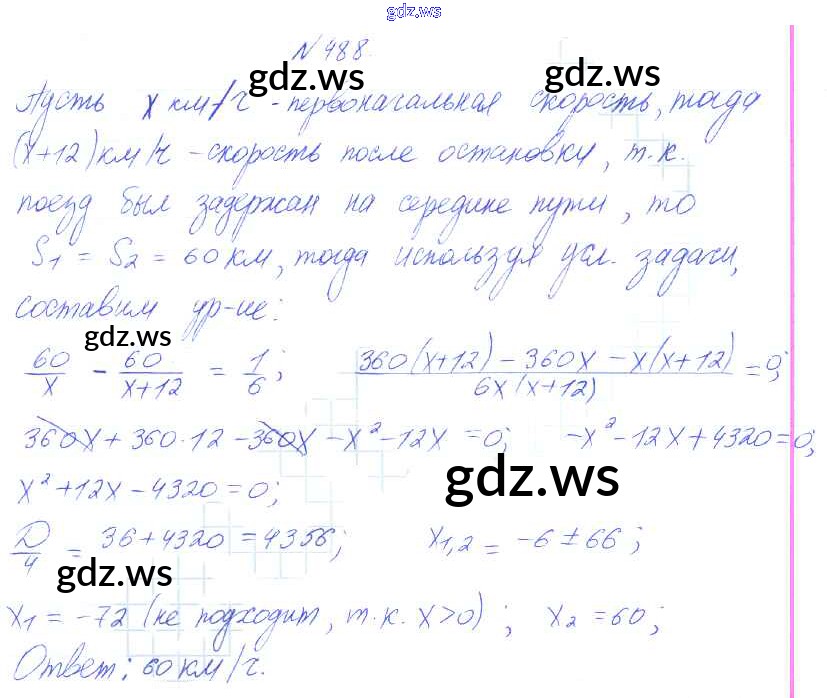 gdz.ws
N 488.
gdz.ws gdz.ws
Пусть x км/ч - первоначальная скорость, тогда
(x+12) км/ч - скорость после остановки, т.к.
поезд был задержан на середине пути, то
S₁ = S₂ = 60 км, тогда используя усл. задачи,
составим ур-ие:
gdz.ws
60/x - 60/(x+12) = 1/6; (360(x+12) - 360x - x(x+12))/(6x(x+12)) = 0;
360x + 360·12 - 360x - x² - 12x = 0; -x² - 12x + 4320 = 0;
gdz.ws
x² + 12x - 4320 = 0;
D/4 = 36 + 4320 = 4356; x₁,₂ = -6 ± 66;
gdz.ws
x₁ = -72 (не подходит, т.к. x>0); x₂ = 60;
Ответ: 60 км/ч.